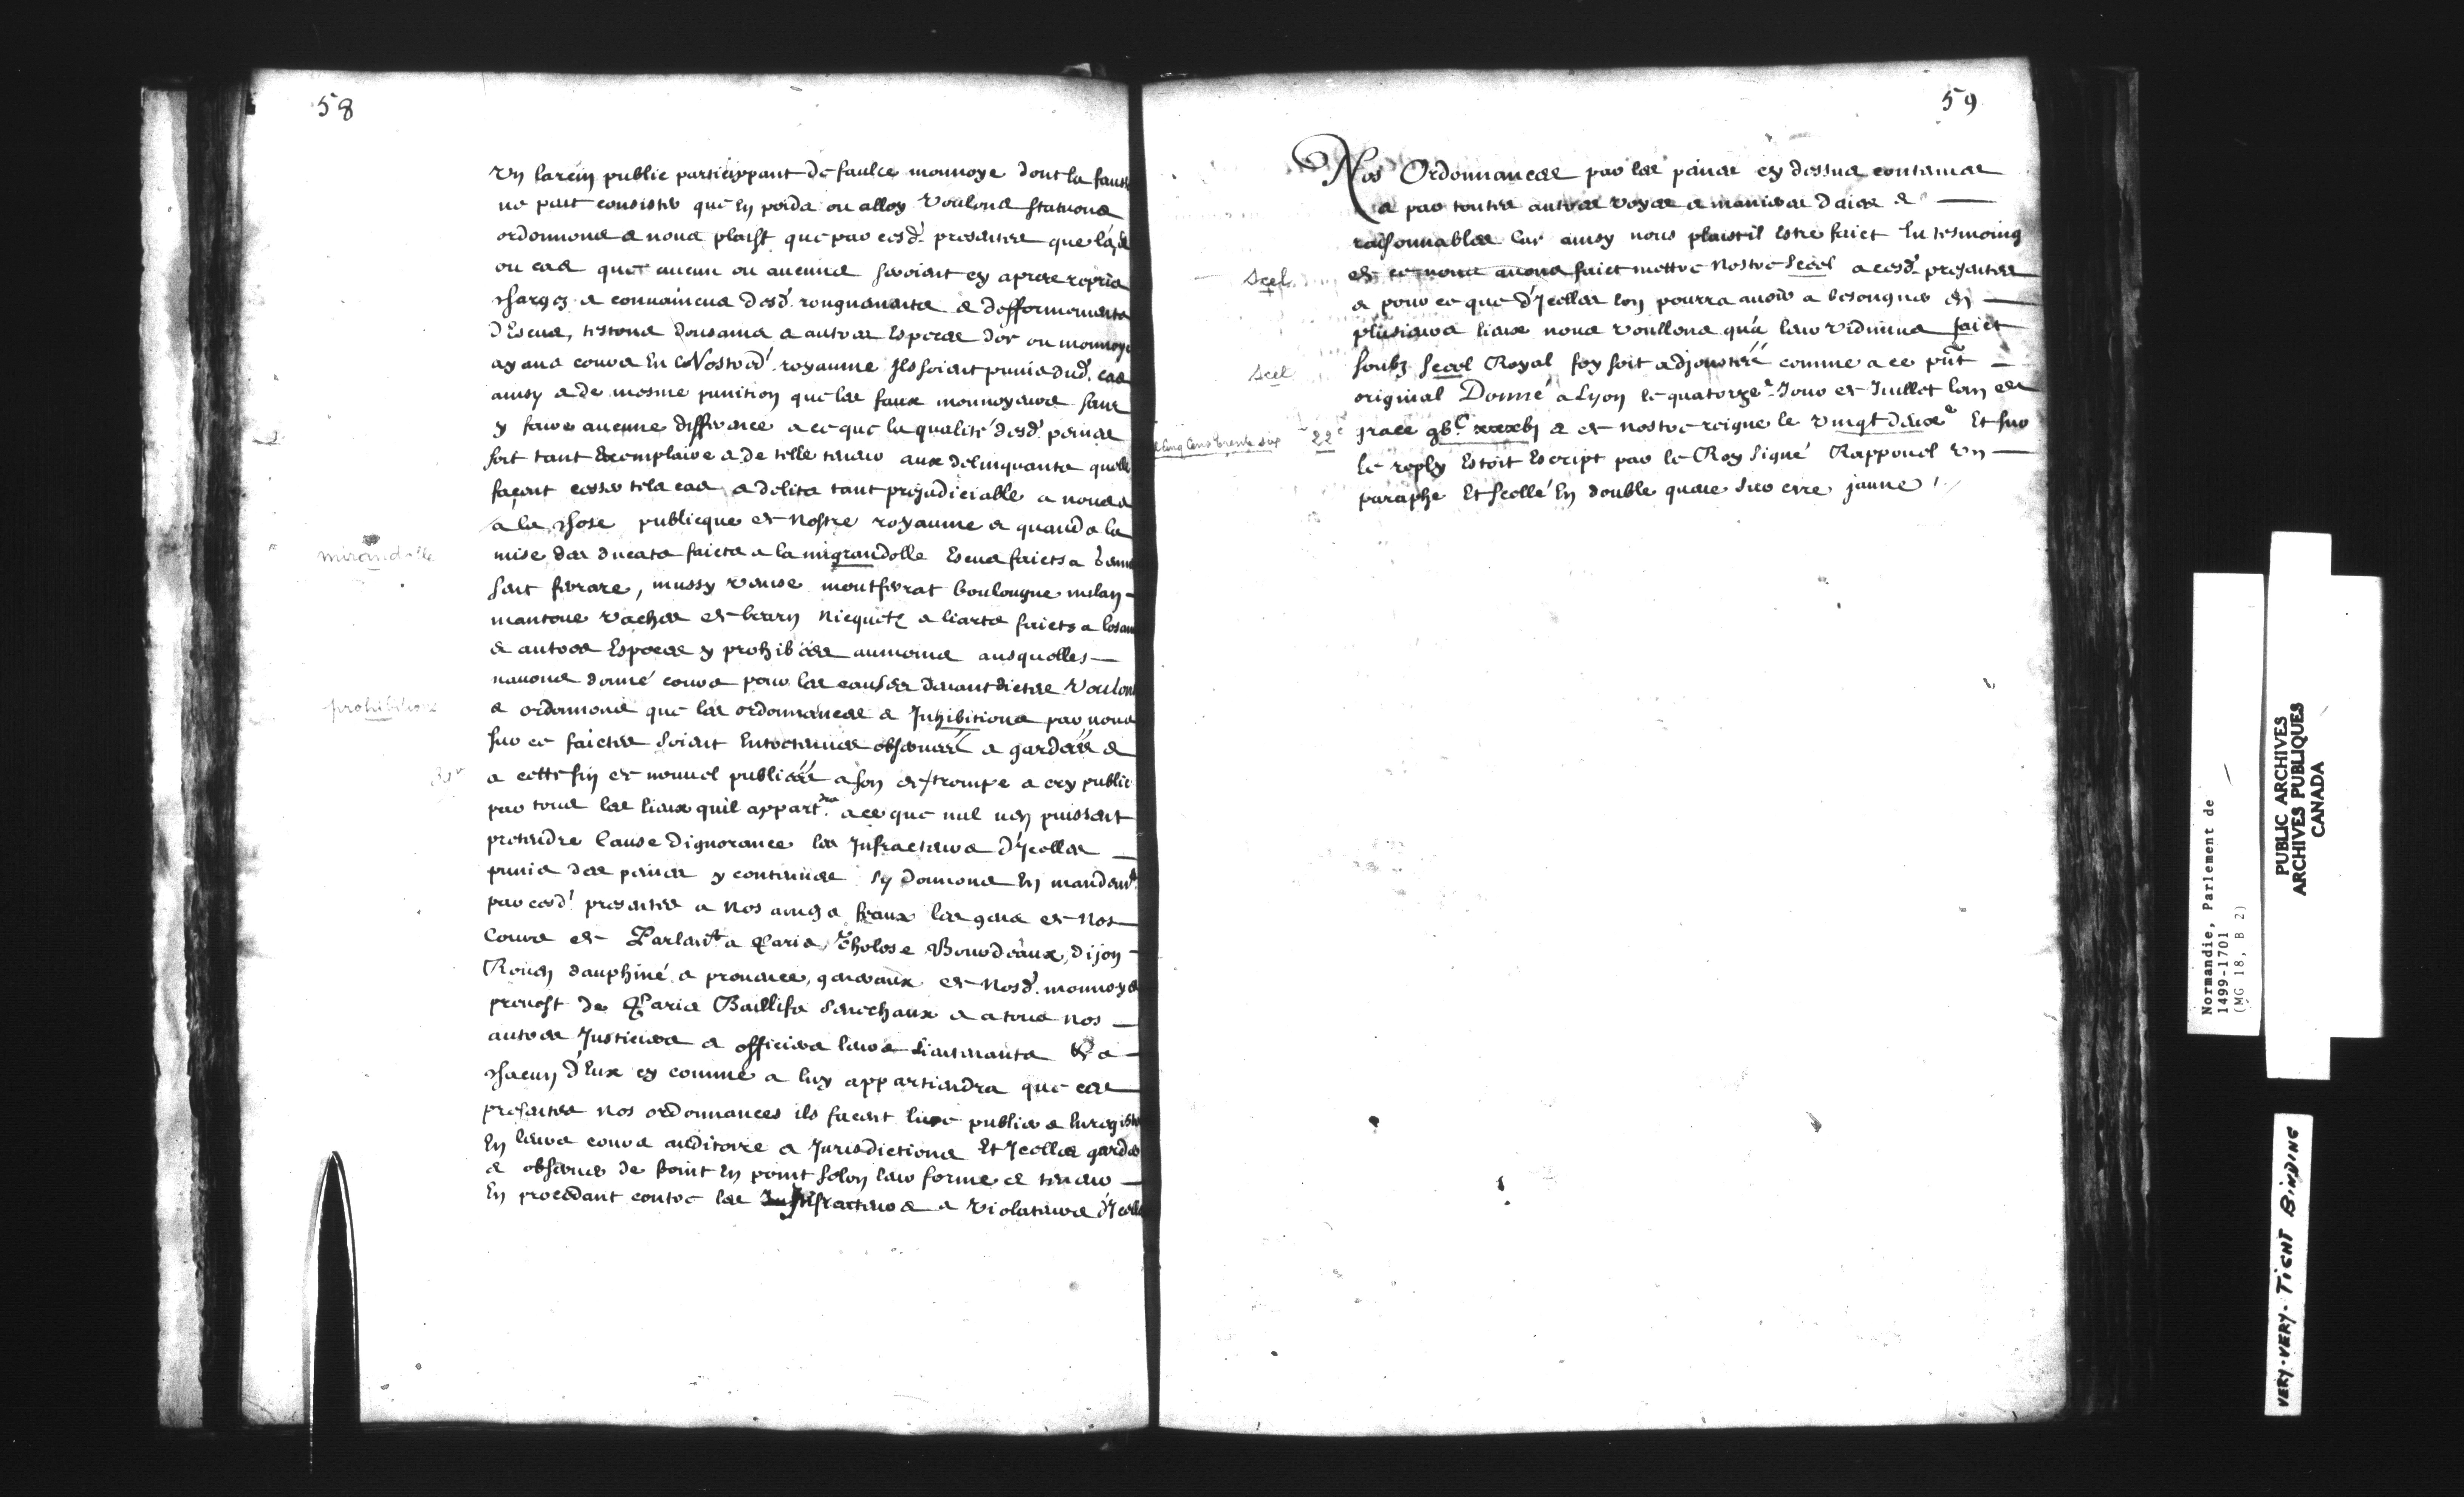 58
Un larcin public particippant de faulce monnoye dont la faus
ne peut consister que en poidz ou alloy Voulons statuons
ordonnons & nous plaist que par cesd. presentes que là
ou cas que aucun ou aucuns seroient cy apres repris
chargez & convaincus desd. rongnements & difformements
d'Escus, testons douzains & autres Especes dor ou monnoye
ayans cours En Nostred. royaume Ils soient punis dud. cas
ainsy & de mesme punition que les faux monnoyeurs sans
y faire aucune difference a ce que la qualité desd. peines
soit tant Exemplaire & de telle terreur aux delinquants quelle
façent cesser tels cas & delits tant prejudiciable a nous &
a la chose publicque de Nostre royaume & quand a la
mise des ducats faicts a la migrandolle Escus faicts a
ferrare, mussy venise montferrat boulougne milan
mantoue Vaches de bearn Niequetz & liarts faicts a losan
& autres Especes y prohibées aumoins ausquelles
navons donné cours pour les causes devant dictes Voulons
& ordonnons que les ordonnances & Inhibitions par nous
sur ce faictes soient Entretenues observées & gardées &
a cette fin de nouvel publiées a son de trompe & cry public
par tous les lieux quil appartdra a ce que nul nen puissent
pretendre Cause dignorance les Infracteurs d'Icelles
punis des peines y contenues Sy donnons En mandemt
par cesd. presentes a Nos amez & feaux les gens de Nos
Cours de Parlemt a Paris, Tholose Bourdeaux, dijon
Rouen dauphiné & provence, generaux de Nosd. monnoyes
prevost de Paris Baillifs Senechaux & a tous nos
autres Justiciers & officiers leurs lieutenants & a
chacun d'Eux cy comme a luy appartiendra que ces
presentes nos ordonnances ils facent lire publier & Enregistr
En leurs cours auditoire & Jurisdictions Et Icelles garder
& observer de point En point selon leur forme & teneur
En procedant contre les Infracteurs & Violateurs d'Icelle
mirandolle
prohibitions
59
Nos Ordonnances par les peines cy dessus contenues
& par toutes autres voyes & manieres deües &
raisonnables Car ainsy nous plaist il Estre faict En tesmoing
de ce nous avons faict mettre Nostre Scel a cesd. presentes
& pour ce que d'Icelles lon pourra avoir a besongner en
plusieurs lieux nous voullons qu'a leur Vidimus faict
soubz Scel Royal foy soit adjoustée comme a ce pnt
original Donné a Lyon le quatorze.e Jour de Juillet lan de
grace gbc xxxbj & de nostre reigne le vingt deuxe Et sur
le reply Estoit Escript par le Roy Signé Rapponel Un
paraphe Et scellé En double queue Sur cire jaune ./.
Scel
Scel
Cinq Cens trente six
22e
Normandie, Parlement de
1499-1701
(MG 18, B 2)
PUBLIC ARCHIVES
ARCHIVES PUBLIQUES
CANADA
VERY-VERY-TIGHT BINDING